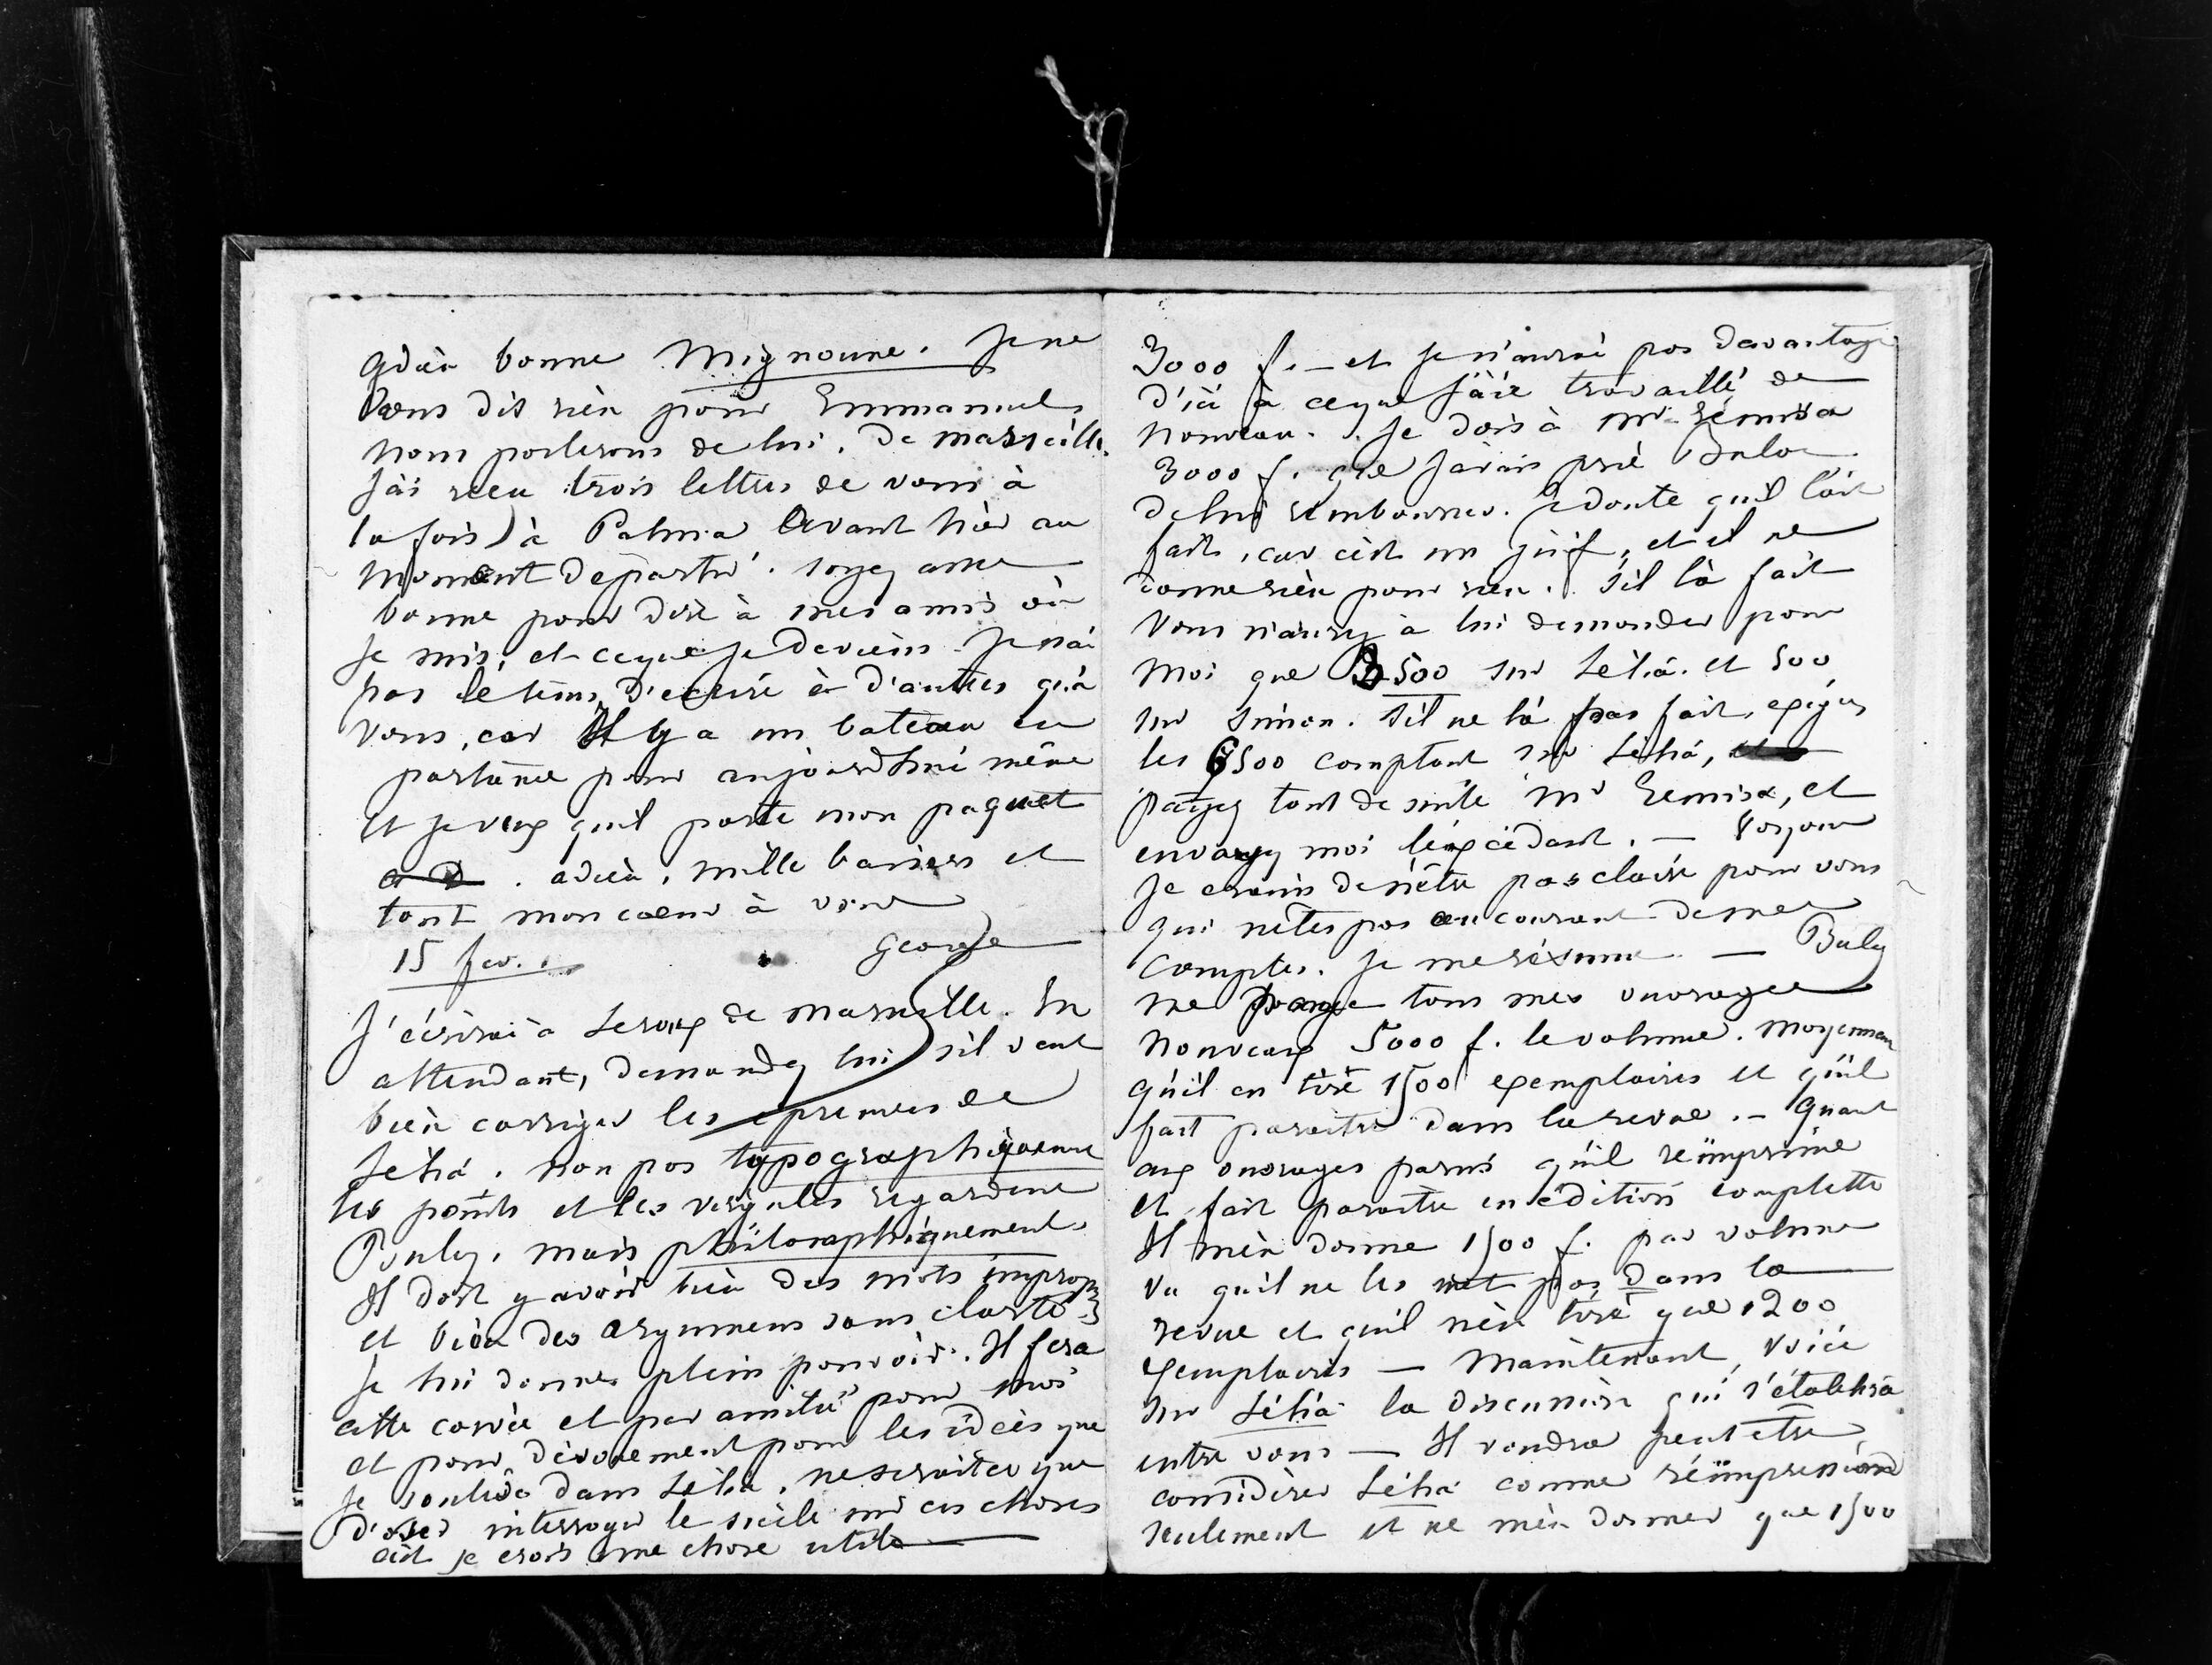 Adieu bonne Mignoune. Je ne
Vous dis rien pour Emmanuel
nous parlerons de lui, de Marseille.
J'ai reçu trois lettres de vous à
la fois à Palma avant hier au
moment de partir. soyez assez
bonne pour dire à mes amis où
je suis, et ce que je deviens. Je n'ai
pas le tems d'ecrire à d'autres qu'à
vous, car Il y a un bateau en
partance pour aujourd'hui même
et je veux qu'il porte mon paquet
adieu, mille baisers et
tout mon coeur à vous
George
15 fev.
J'écrirai à Leroux de Marseille. En
attendant, demandez lui s'il veut
bien corriger les epreuves de
Lélia. non pas typographiquement
les points et les virgules regardent
Buloz. mais philosophiquement.
Il doit y avoir bien des mots impropres
et bien des argumens sans clarté.
Je lui donne plein pouvoir. Il fera
cette corvée et par amitié pour moi
et pour dévouement pour les idées que
je soulève dans Lélia, ne serait ce que
d'oser interroger le siècle sur ces choses
c'est je crois une chose utile
3000 f. — et je n'aurai pas davantage
d'ici à ce que j'aie travaillé de
nouveau. Je dois à Mr Rémisa
3000 f. que j'avais prié Buloz
de lui rembourser. Je doute qu'il l'ait
fait, car c'est un juif, et il ne
donne rien pour rien. S'il l'a fait
Vous n'aurez à lui demander pour
moi que 3500 sur Lélia. et 500
sur Simon. S'il ne l'a pas fait, exigez
les 6500 comptant sur Lélia,
payez tout de suite Mr Remisa, et
envoyez moi l'excédant. — Voyons
Je crains de n'être pas claire pour vous
qui n'êtes pas au courant de mes
Comptes. Je me résume — Buloz
me paye tous mes ouvrages
nouveaux 5000 f. le volume. Moyennant
qu'il en tire 1500 exemplaires et qu'il
fait paraitre dans la revue. — Quant
aux ouvrages parus qu'il réimprime
et fait paraitre en édition complette
Il m'en donne 1500 f. par volume
vu qu'il ne les met pas dans la
revue et qu'il n'en tire que 1200
exemplaires — Maintenant, voici
sur Lélia la discussion qui s'établira
entre vous — Il voudra peut etre
considérer Lélia comme réimpression
seulement et ne m'en donner que 1500